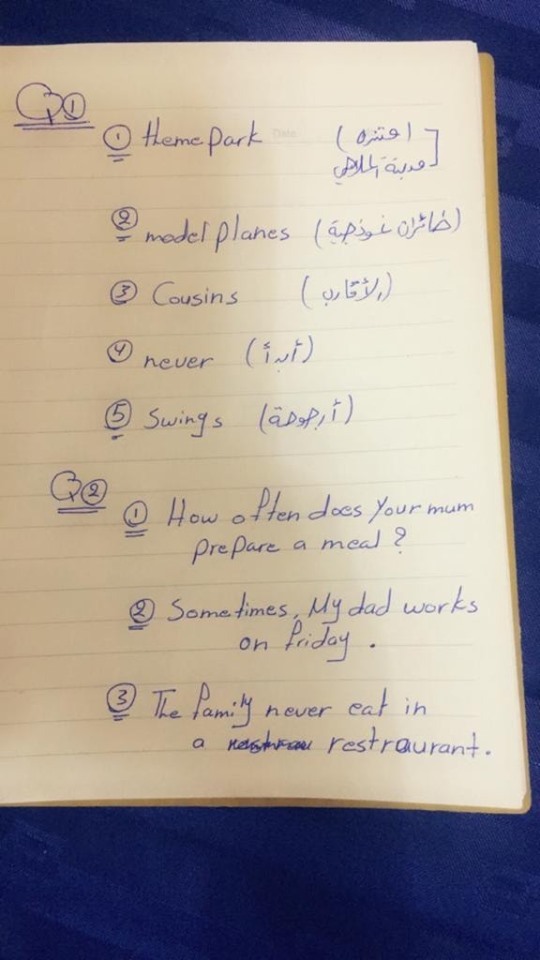 Q1
1 theme park (متنزه
مدينة الملاهي)
2 model planes (طائرات نموذجية)
3 Cousins (الأقارب)
4 never (أبدأ)
5 Swings (أرجوحة)
Q2
1 How often does your mum
prepare a meal?
2 Sometimes, My dad works
on friday.
3 The family never eat in
a restraurant.